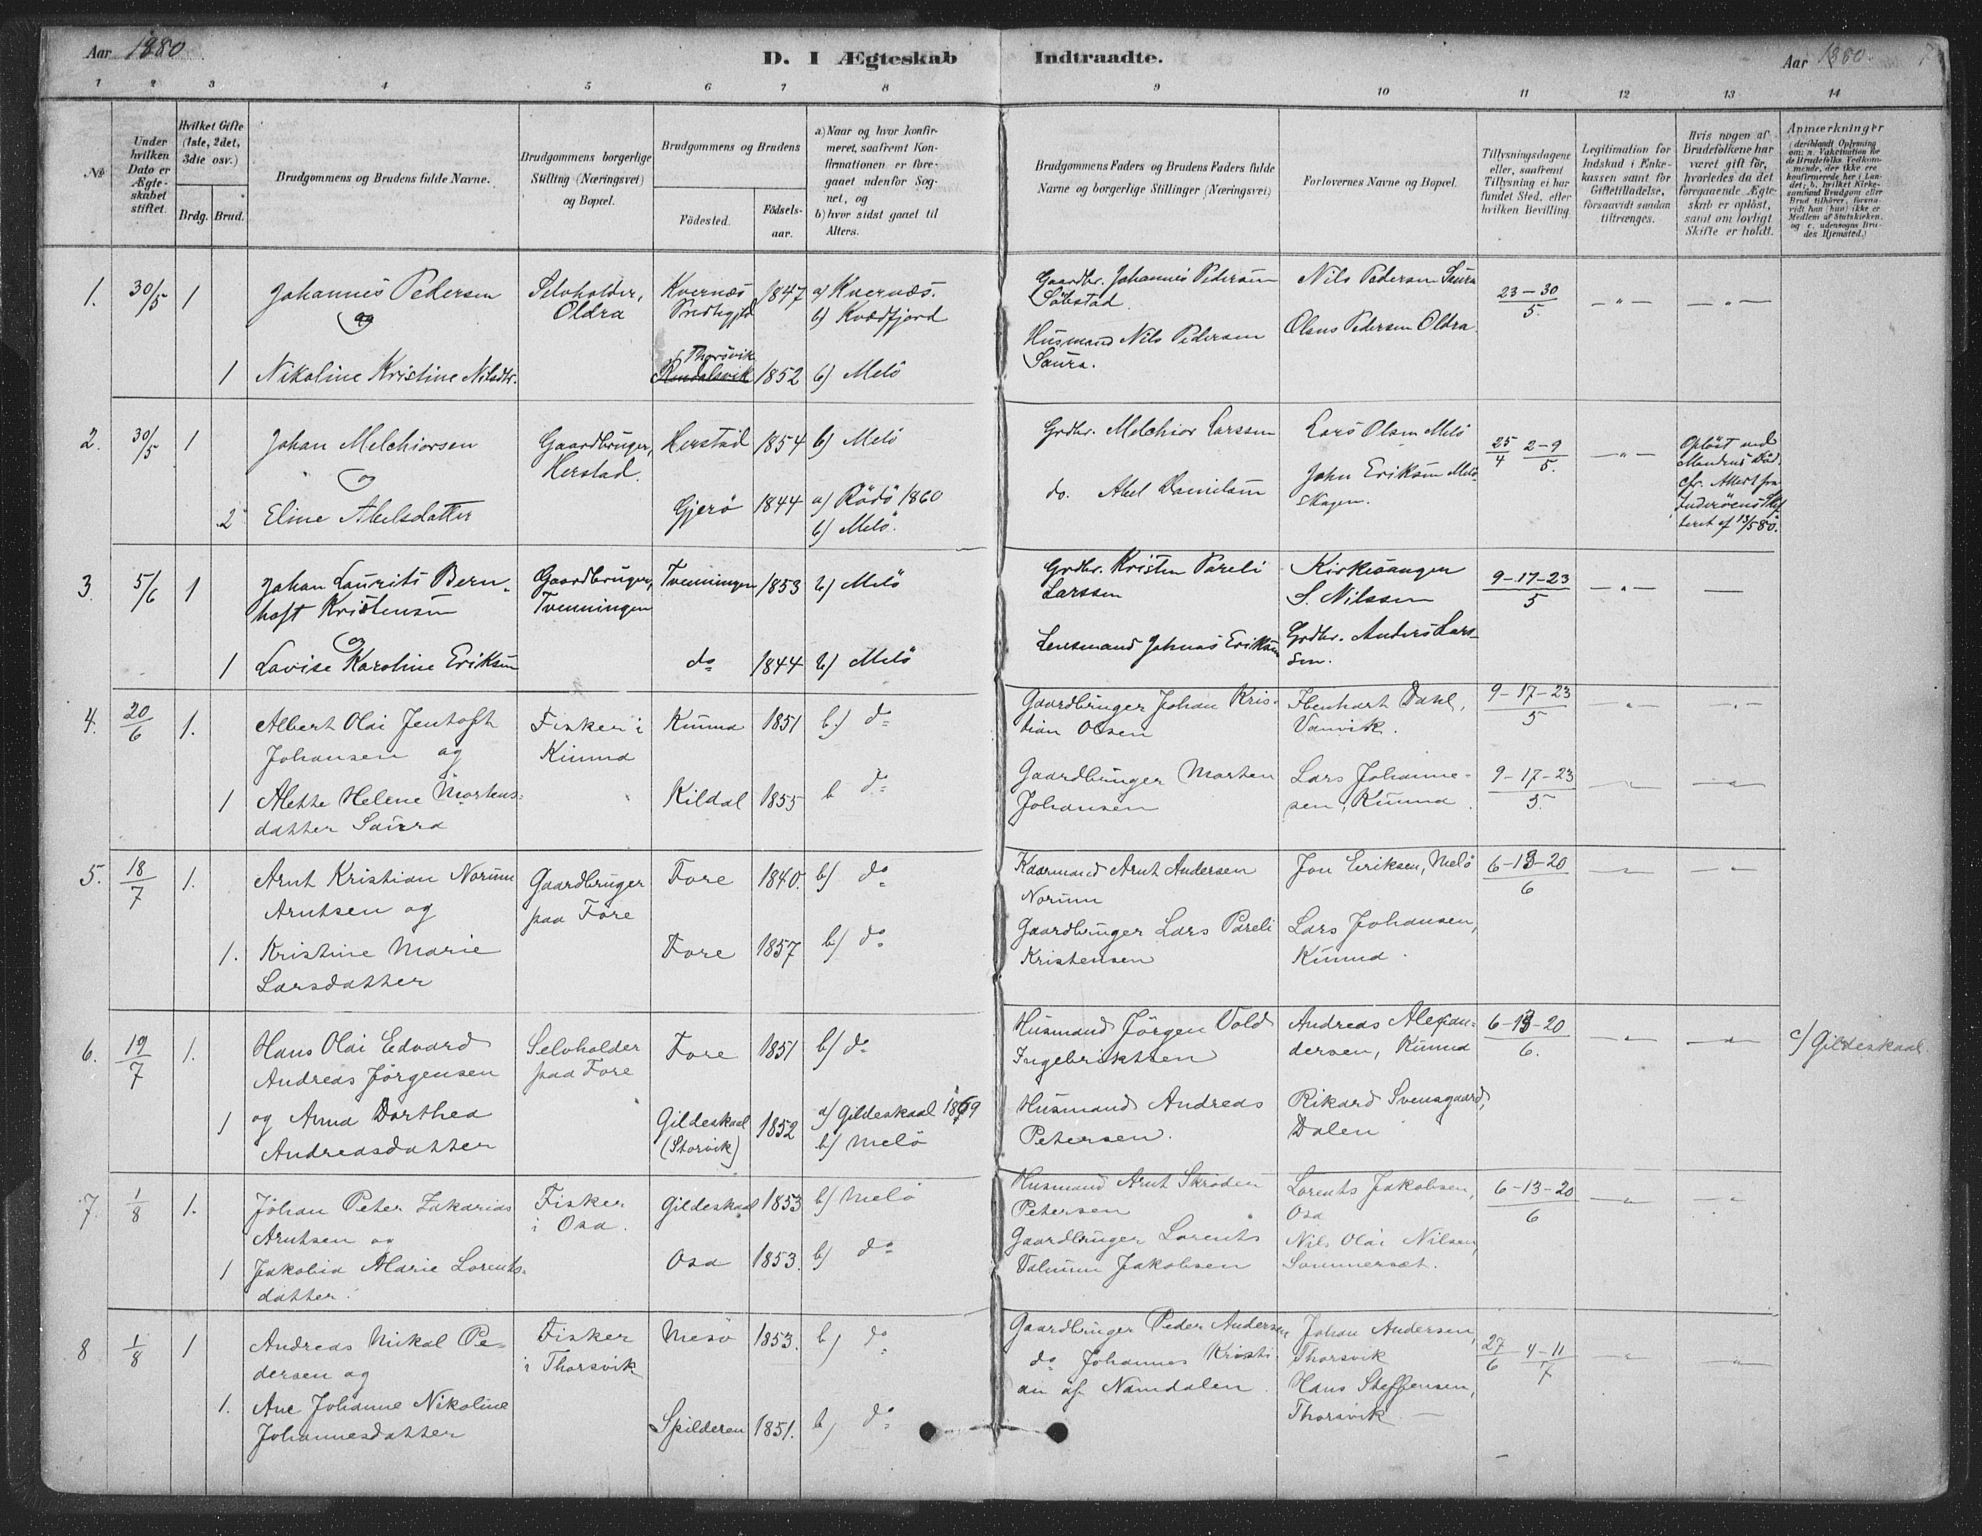 Aar 1880
D. I Ægteskab Indtraadte.
Aar 1880. 7
1 2 3 4 5 6 7 8 9 10 11 12 13 14
No
Under hvilken Dato er Ægteskabet stiftet.
Hvilket Gifte (1ste, 2det, 3die osv.)
Brdg. Brud.
Brudgommens og Brudens fulde Navne.
Brudgommens borgerlige Stilling (Næringsvei) og Bopæl.
Brudgommens og Brudens
Födested. Födsels-aar.
a) Naar og hvor konfirmeret, saafremt Konfirmationen er foregaaet udenfor Sognet, og
b) hvor sidst gaaet til Alters.
Brudgommens Faders og Brudens Faders fulde Navne og borgerlige Stillinger (Næringsvei)
Forlovernes Navne og Bopæl.
Tillysningsdagene eller, saafremt Tillysning ei har fundet Sted, efter hvilken Bevilling
Legitimation for Indskud i Enkekassen samt for Giftetilladelse, forsaavidt saadan tiltrænges.
Hvis nogen af Brudefolkene har været gift för, hvorledes da det foregaaende Ægteskab er oplöst, samt om lovligt Skifte er holdt.
Anmærkninger (deriblandt Oplysning om: a. Vakcination for de Brudefolks Vedkommende, der ikke ere konfirmerede her i Landet; b. hvilket Kirkesamfund Brudgom eller Brud tilhörer, forsaavidt han (hun) ikke er Medlem af Statskirken, og c. udensogns Brudes Hjemsted.)
1. 30/5 1 Johannes Pedersen Selvholder, Kvernæs 1847 a) Kvernæs. Gaardbr. Johannes Pedersen Nils Pedersen Saura 23-30/5 — „ — — „ —
og Oldra Præstegjeld b) Kvædfjord Söbstad. Olaus Pedersen Oldra
1 Nikoline Kristine Nilsdtr. Thorsvik 1852 b) Melö Husmand Nils Pedersen
Saura.
2. 30/5 1 Johan Melchiorsen Gaardbruger, Herstad 1854 b) Melö Grdbr. Melchior Larssen Lars Olsen Melö 25/4 2-9/5. — „ — Oplöst ved
og Herstad. Mandens Död.
2 Eline Abelsdatter Gjerö 1844 a) Rödö 1860 do. Abel Danielsen John Eriksen Melö cfr. Attest fra
b) Melö. Skagen.
teret af 13/5 80.
3 5/6 1 Johan Laurits Bern- Gaardbruger, Tvenningen 1853 b) Melö Grdbr. Kristen Pareli Kirkesanger 9-17-23/5 — „ — —
hoft Kristensen Tvenningen Larssen S. Nilssen
og
1 Lovise Karoline Eriksen do 1844 b) Melö Lensmand Johnas Eriksen Grdbr. Anders Lars-
sen.
4. 20/6 1. Albert Olai Jentoft Fisker i Kunna 1851 b.) do Gaardbruger Johan Kris- Ebenhart Dahl, 9-17-23/5 — „ — — „ —
Johansen og Kunna tian Olsen Vanvik.
1 Alette Helene Mortens- Kildal 1855 b do Gaardbruger Morten Lars Johanne- 9-17-23/5. — „ — — „ —
datter Saura Johansen sen, Kunna.
5. 18/7 1. Arnt Kristian Norum Gaardbruger Fore 1840. b) do Kaarmand Arnt Andersen Jon Eriksen, Melö 6-13-20/6 — „ — — „ —
Arntsen og paa Fore Norum
1. Kristine Marie Fore 1857 b) do Gaardbruger Lars Pareli Lars Johansen,
Larsdatter Kristensen Kunna.
6. 19/7 1. Hans Olai Edvard Selvholder Fore 1851 b) do Husmand Jörgen Vold Andreas Alexan- 6-13-20/6. — „ — — „ — c/ Gildeskaal.
Andreas Jörgensen paa Fore Ingebriktsen dersen, Kunna
1 og Anna Dorthea Gildeskaal 1852 a) Gildeskaal 1869 Husmand Andreas Rikard Svensgaard,
Andreasdatter (Storvik) b) Melö Petersen. Dalen
7. 1/8 1. Johan Peter Zakarias Fisker Gildeskaal 1853 b) Melö Husmand Arnt Skroden Lorents Jakobsen, 6-13-20/6 — „ — — „ —
Arntsen og i Osa. Petersen Osa
1 Jakobia Marie Lorents- Osa 1853. b) do Gaardbruger Lorents Nils Olai Nilsen,
datter. Jakobsen Sommerset.
8 1/8 1 Andreas Mikal Pe- Fisker Mesö 1853. b) do Gaardbruger Peder Andersen Johan Andersen, 27/6 4-11/7 — „ — — „ —
dersen og i Thorsvik do Johannes Kristi- Thorsvik
1. Ane Johanne Nikoline Spilderen 1851. b) do an af Namdalen. Hans Steffensen,
Johannesdatter Thorsvik —